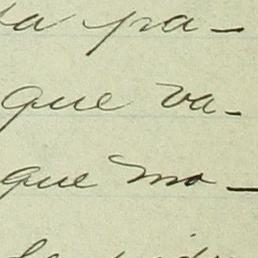 la pa-
que va-
que mo-